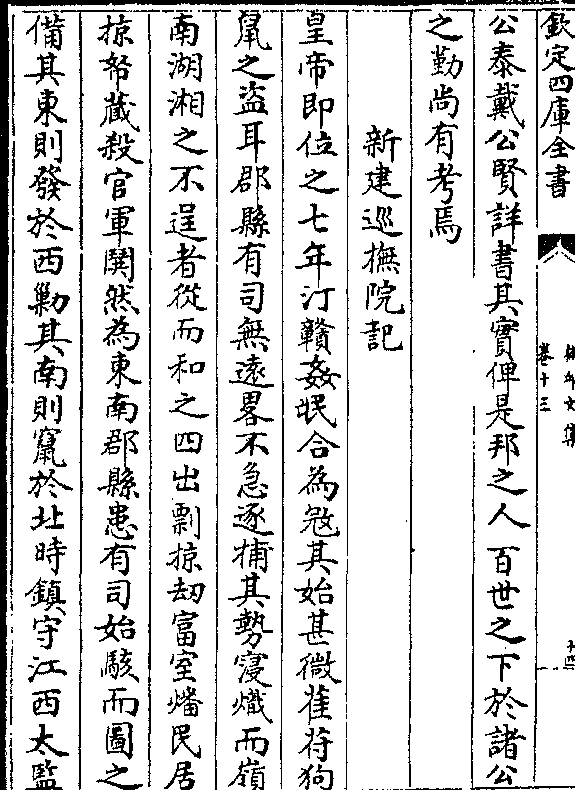 欽定四庫全書
卷十三
公泰戴公賢詳書其實俾是邦之人百世之下於諸公
之勤尚有考焉
新建巡撫院記
皇帝即位之七年汀贛姦氓合為寇其始甚微萑苻狗
鼠之盜耳郡縣有司無遠畧不急逐捕其勢寖熾而嶺
南湖湘之不逞者從而和之四出剽掠劫富室燔民居
掠帑藏殺官軍鬨然為東南郡縣患有司始駭而圖之
備其東則發於西剿其南則竄於北時鎮守江西太監